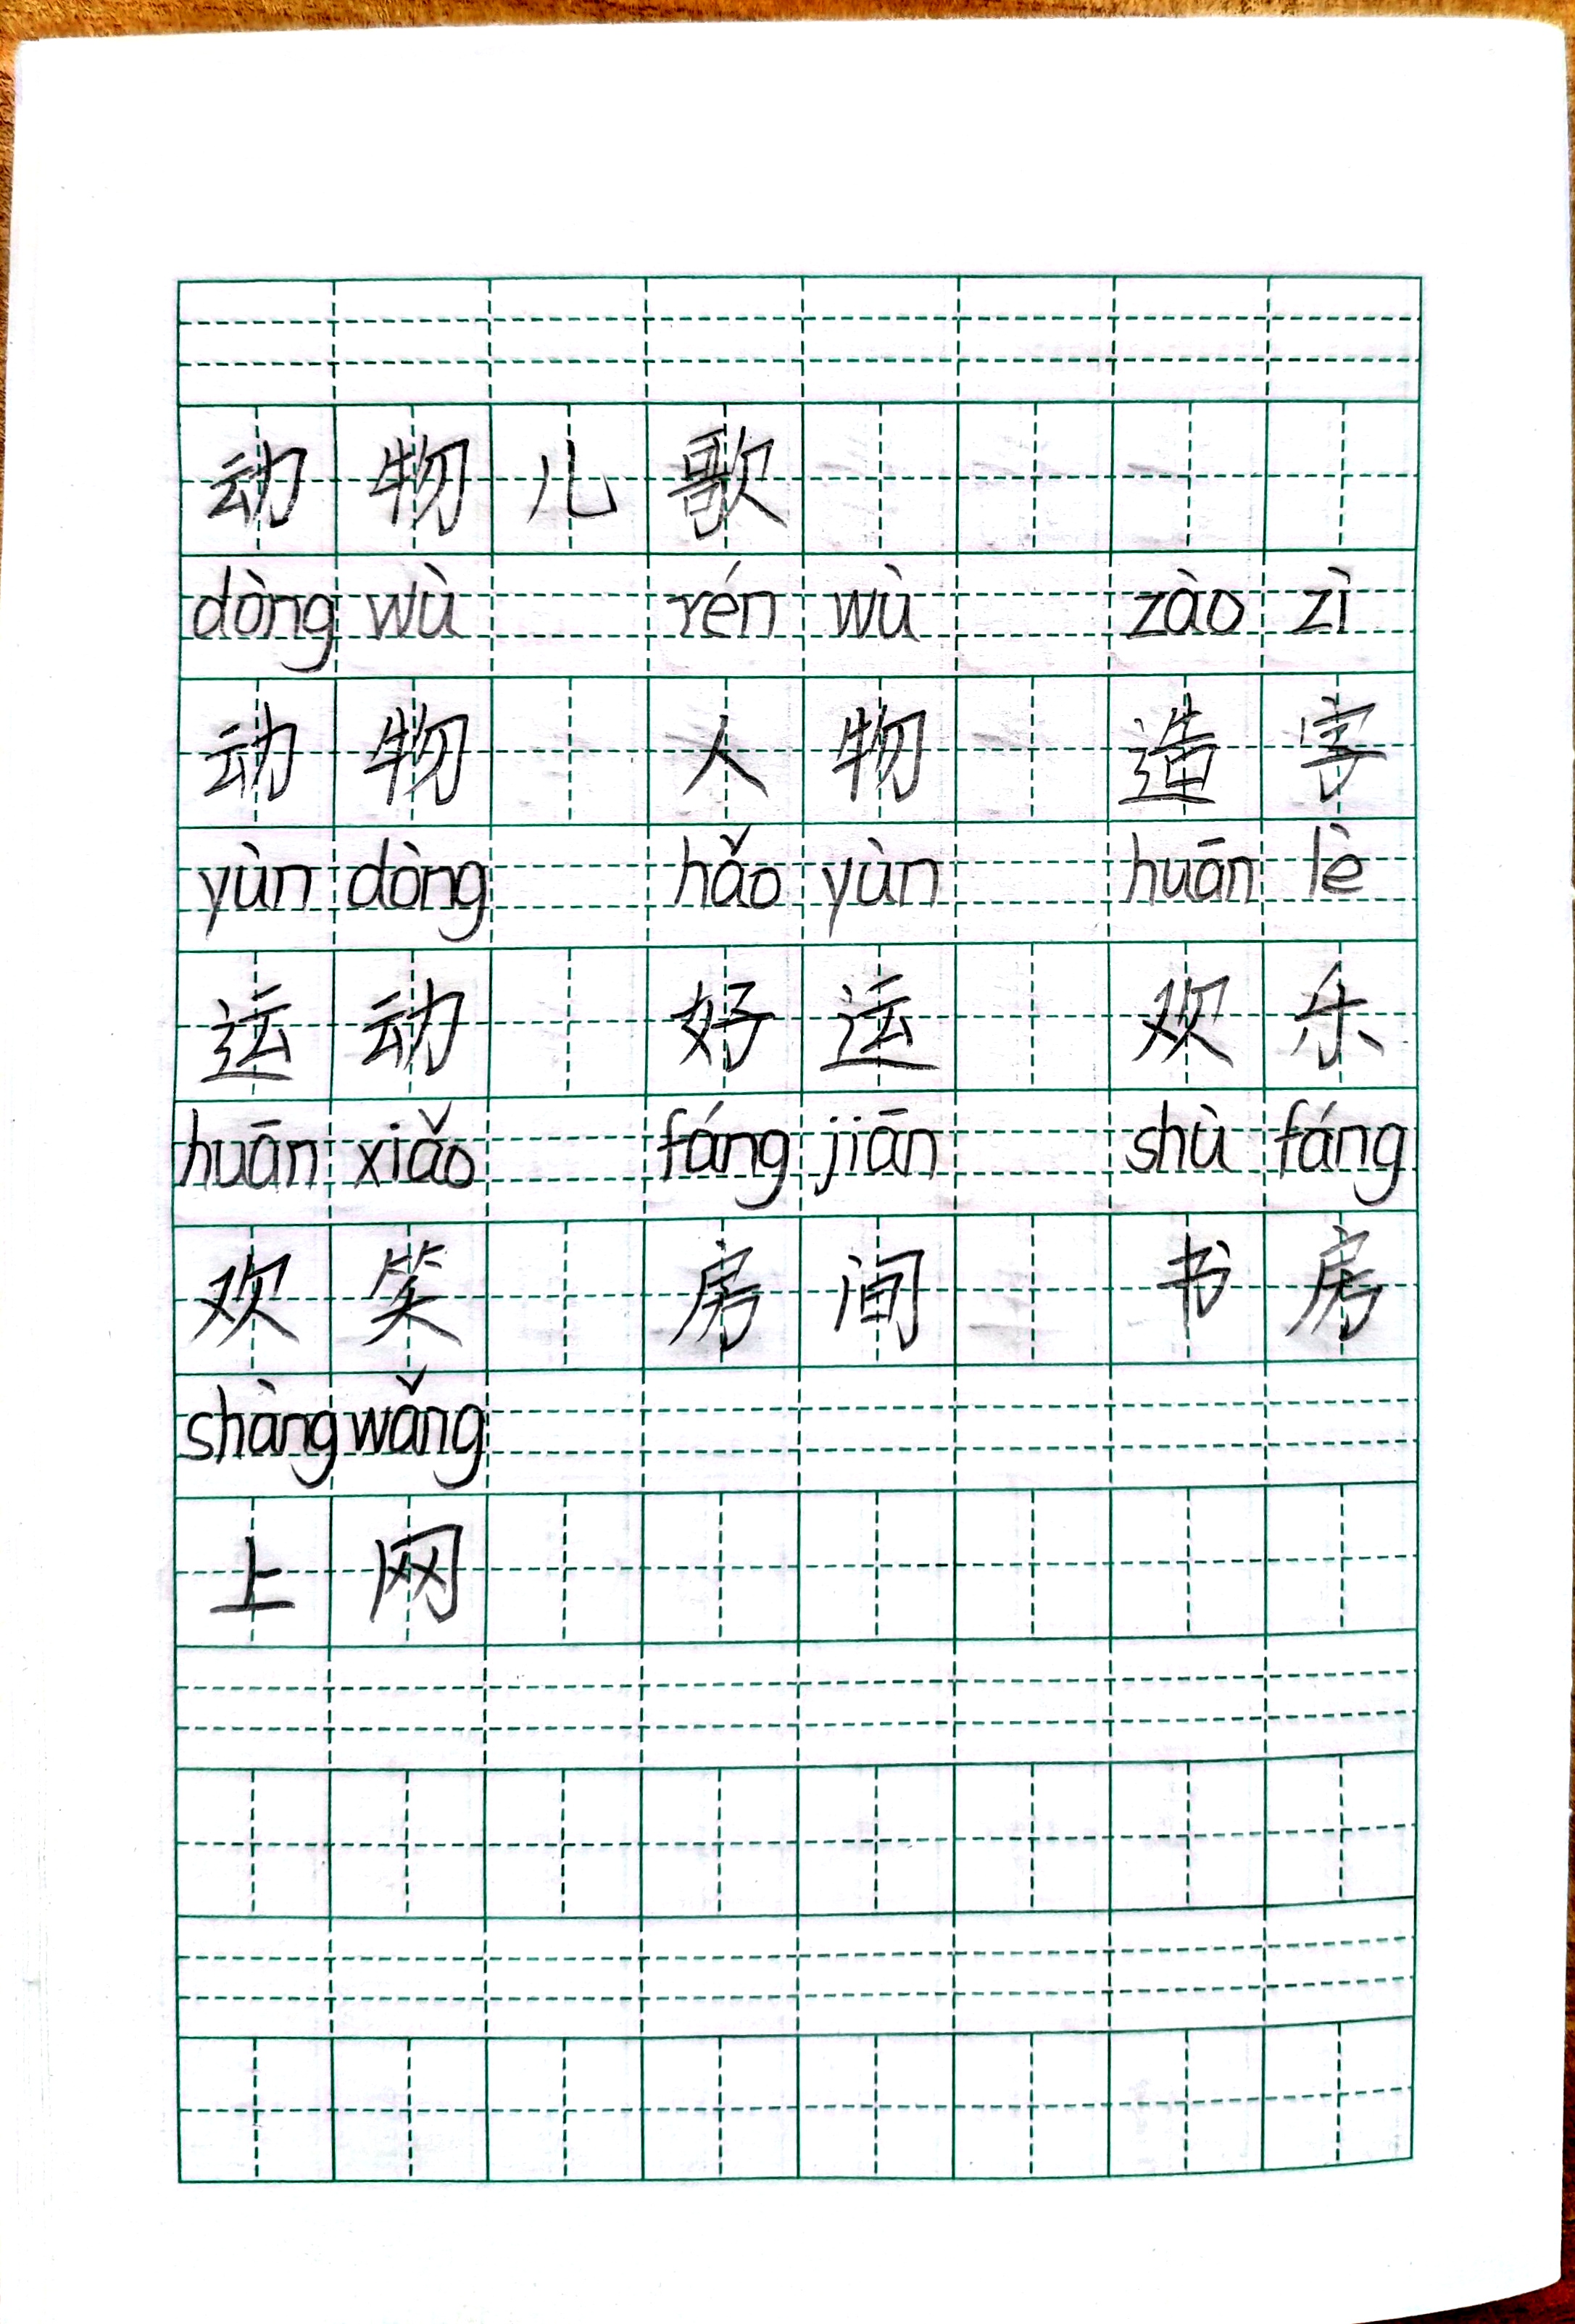 动物儿歌
dòng wù rén wù zào zì
动物 人物 造字
yùn dòng hǎo yùn huān lè
运动 好运 欢乐
huān xiǎo fáng jiān shù fáng
欢笑 房间 书房
shàng wǎng
上网